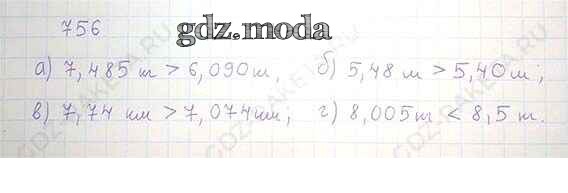 756
gdz.moda
а) 7,485 т > 6,090 т, б) 5,48 м > 5,40 м;
в) 7,74 км > 7,074 км; г) 8,005 т < 8,5 т.
GDZ-RAKETA.RU